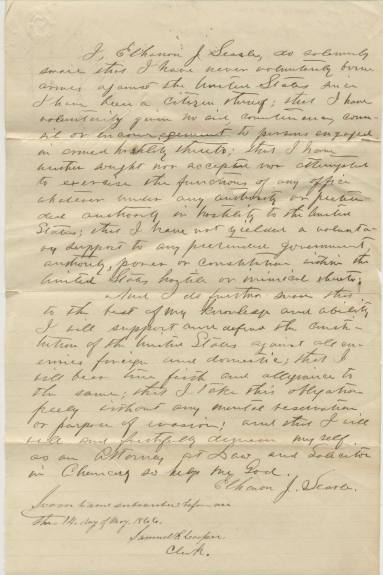 I, Elhanon J. Searle, do solemnly
swear that I have never voluntarily borne
arms against the United States since
I have been a citizen thereof; that I have
voluntarily given no aid, countenance, coun-
sil or encouragement to persons engaged
in armed hostility thereto; that I have
neither sought nor accepted nor attempted
to exercise the functions of any office
whatever under any authority or preten-
ded authority in hostility to the United
States; that I have not yielded a volunta-
ry support to any pretended government,
authority, power or constitution within the
United States hostile or inimical thereto;
And I do further swear that
to the best of my knowledge and ability
I will support and defend the Consti-
tution of the United States against all en-
emies foreign and domestic; that I
will bear true faith and allegiance to
the same; that I take this obligation
freely without any mental reservation
or purpose of evasion; and that I will
well and faithfully demean myself
as an Attorney at Law and Solicitor
in Chancery so help me God.
Elhanon J. Searle.
Sworn to and subscribed before me
this 14. day of May. 1866.
Samuel
Clerk.